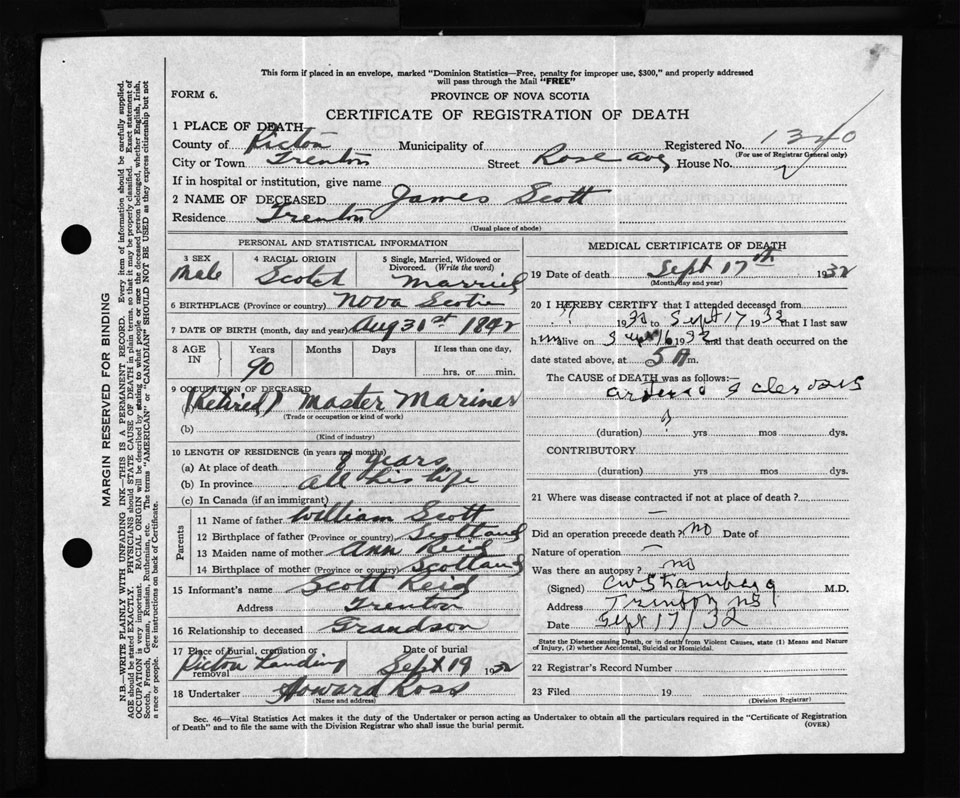 This form if placed in an envelope, marked "Dominion Statistics—Free, penalty for improper use, $300," and properly addressed
will pass through the Mail "FREE"
FORM 6.
PROVINCE OF NOVA SCOTIA
CERTIFICATE OF REGISTRATION OF DEATH
1 PLACE OF DEATH
County of Pictou Municipality of Registered No. 1340
(For use of Registrar General only)
City or Town Trenton Street Rose ave House No.
If in hospital or institution, give name
2 NAME OF DECEASED James Scott
Residence Trenton
(Usual place of abode)
PERSONAL AND STATISTICAL INFORMATION
3 SEX Male
4 RACIAL ORIGIN Scotch
5 Single, Married, Widowed or Divorced. (Write the word) Married
6 BIRTHPLACE (Province or country) Nova Scotia
7 DATE OF BIRTH (month, day and year) Aug 31st 1842
8 AGE IN Years Months Days If less than one day,
90 hrs. or min.
9 OCCUPATION OF DECEASED
(Retired) Master Mariner
(Trade or occupation or kind of work)
(b)
(Kind of industry)
10 LENGTH OF RESIDENCE (in years and months)
(a) At place of death 8 years
(b) In province all his life
(c) In Canada (if an immigrant)
Parents
11 Name of father William Scott
12 Birthplace of father (Province or country) Scotland
13 Maiden name of mother Ann Reid
14 Birthplace of mother (Province or country) Scotland
15 Informant's name Scott Reid
Address Trenton
16 Relationship to deceased Grandson
17 Place of burial, cremation or removal Pictou Landing Date of burial Sept 19 1932
18 Undertaker Howard Ross
(Name and address)
MEDICAL CERTIFICATE OF DEATH
19 Date of death Sept 17th 1932
(Month, day and year)
20 I HEREBY CERTIFY that I attended deceased from
?? 1932 to Sept 17 1932 that I last saw
him alive on Sept 16 1932 and that death occurred on the
date stated above, at 5 A m.
The CAUSE of DEATH was as follows:
arterio sclerosis
?
(duration) yrs mos dys.
CONTRIBUTORY
(duration) yrs mos dys.
21 Where was disease contracted if not at place of death?
—
Did an operation precede death? no Date of
Nature of operation —
Was there an autopsy? no
(Signed) M.D.
Address Trenton NS
Date Sept 17/32
State the Disease causing Death, or in death from Violent Causes, state (1) Means and Nature
of Injury, (2) whether Accidental, Suicidal or Homicidal.
22 Registrar's Record Number
23 Filed 19
(Division Registrar)
Sec. 46—Vital Statistics Act makes it the duty of the Undertaker or person acting as Undertaker to obtain all the particulars required in the "Certificate of Registration
of Death" and to file the same with the Division Registrar who shall issue the burial permit.
(OVER)
MARGIN RESERVED FOR BINDING
N.B.—WRITE PLAINLY WITH UNFADING INK—THIS IS A PERMANENT RECORD. Every item of information should be carefully supplied.
AGE should be stated EXACTLY. PHYSICIANS should STATE CAUSE OF DEATH in plain terms, so that it may be properly classified. Exact statement of
OCCUPATION is very important. RACIAL ORIGIN will be described by stating to what people or race the deceased person belonged, whether English, Irish,
Scotch, French, German, Russian, Ruthenian, etc. The terms "AMERICAN" or "CANADIAN" SHOULD NOT BE USED as they express citizenship but not
a race or people. See instructions on back of Certificate.